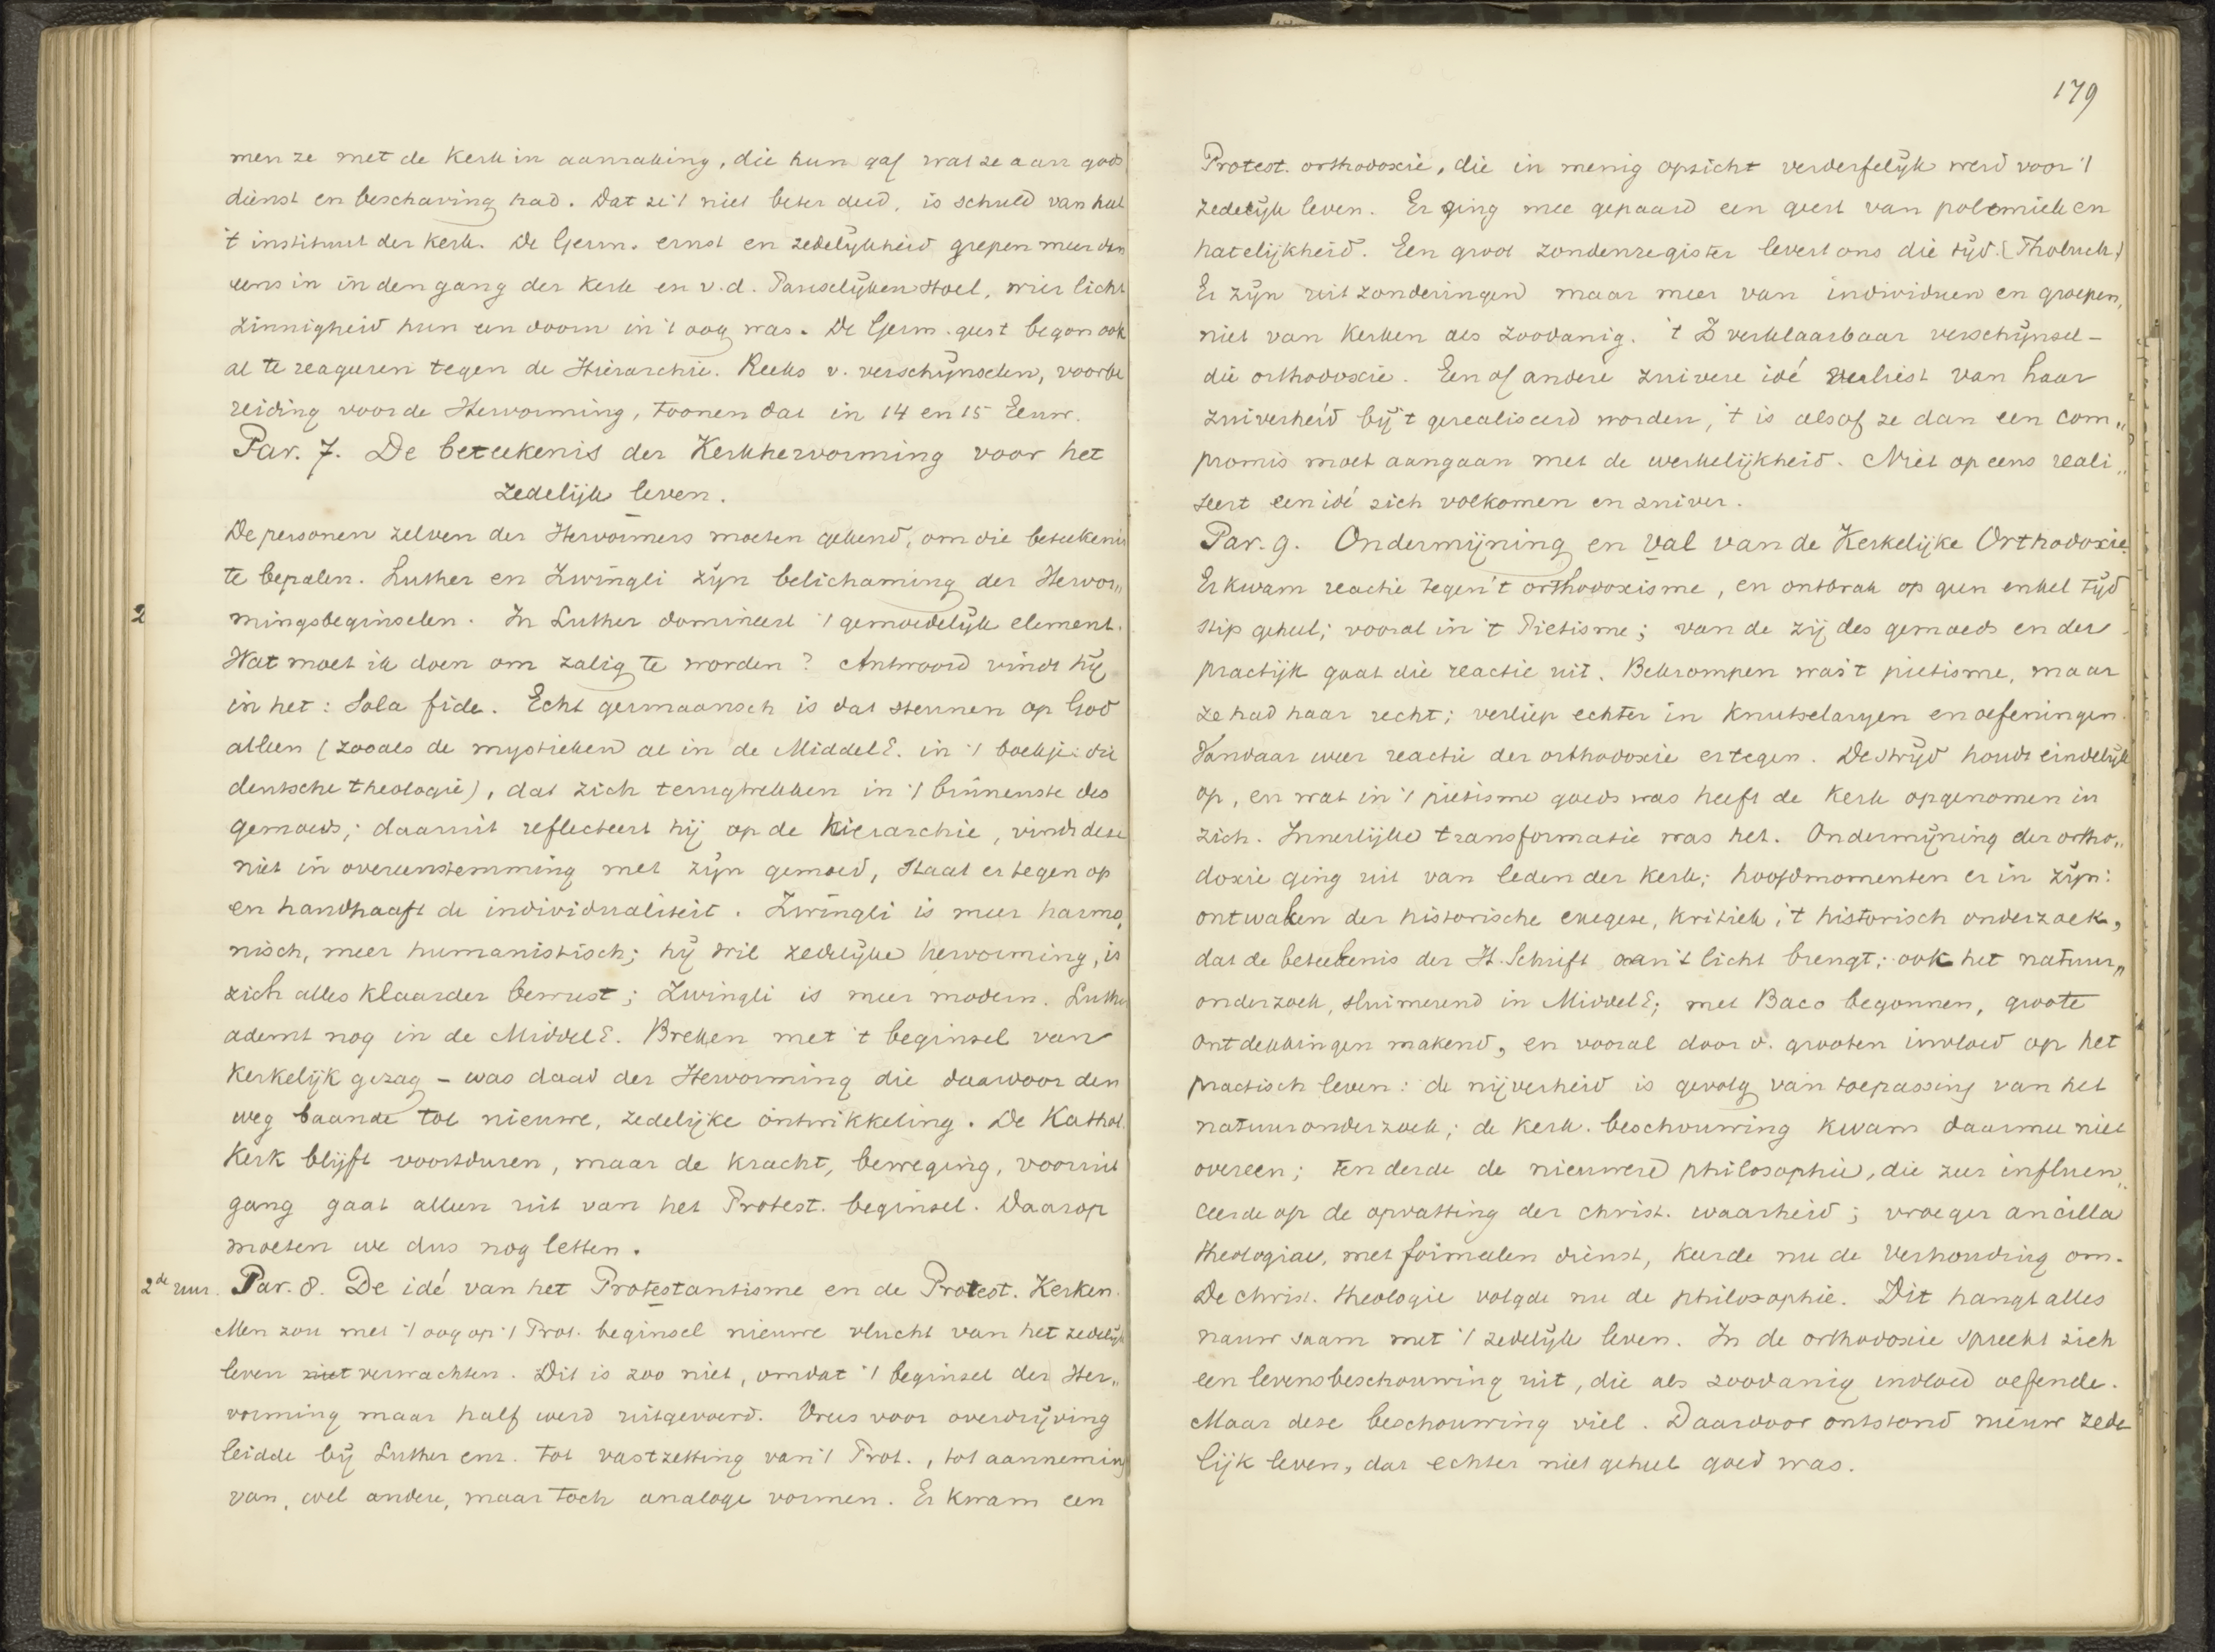 men ze met de Kerk in aanraking, die hun gaf wat ze aan gods
dienst en beschaving had. Dat ze 't niet beter deed, is schuld van heel
't instituut der Kerk. De Germ. ernst en zedelijkheid grepen meer dan
eens in in den gang der Kerk en v.d. Pauselijken Stoel, wier licht
zinnigheid hun een doorn in 't oog was. De Germ. geest begon ook
al te reageren tegen de Hierarchie. Reeks v. verschijnselen, voorbe
reiding voor de Hervorming, toonen dat in 14 en 15 Eeuw.
Par. 7. De beteekenis der Kerkhervorming voor het
zedelijk leven.
De personen zelven der Hervormers moeten gekend, om die beteekenis
te bepalen. Luther en Zwingli zijn belichaming der Hervor„
2
mingsbeginselen. In Luther domineert 't gemoedelijk element.
Wat moet ik doen om zalig te worden? Antwoord vindt hij
in het: Sola fide. Echt germaansch is dat steunen op God
alleen (zooals de mystieken al in de Middel E. in 't boekje: die
deutsche theologie), dat zich terugtrekken in 't binnenste des
gemoeds; daaruit reflecteert hij op de hierarchie, vindt deze
niet in overeenstemming met zijn gemoed, staat er tegen op
en handhaaft de individualiteit. Zwingli is meer harmo„
nisch, meer humanistisch; hij wil zedelijke hervorming, is
zich alles klaarder bewust; Zwingli is meer modern. Luther
ademt nog in de Middel E. Breken met 't beginsel van
Kerkelijk gezag – was daad der Hervorming die daarvoor den
weg baande tot nieuwe, zedelijke ontwikkeling. De Kathol.
Kerk blijft voortduren, maar de kracht, beweging, vooruit
gang gaat alleen uit van het Protest. beginsel. Daarop
moeten we dus nog letten.
2de uur. Par. 8. De idé van het Protestantisme en de Protest. Kerken.
Men zou met 't oog op 't Prot. beginsel nieuwe vlucht van het zedelijk
leven niet verwachten. Dit is zoo niet, omdat 't beginsel der Her„
vorming maar half werd uitgevoerd. Vrees voor overdrijving
leidde bij Luther enz. tot vastzetting van 't Prot., tot aanneming
van, wel andere, maar toch analoge vormen. Er kwam een
179
Protest. orthodoxie, die in menig opzicht verderfelijk werd voor 't
zedelijk leven. Er ging mee gepaard een geest van polemiek en
hatelijkheid. Een groot zondenregister levert ons die tijd. (Tholuck)
Er zijn uitzonderingen maar meer van individuen en groepen,
niet van Kerken als zoodanig. 't Is verklaarbaar verschijnsel –
die orthodoxie. Een of andere zuivere idé verliest van haar
zuiverheid bij 't gerealiseerd worden, 't is alsof ze dan een com„
promis moet aangaan met de werkelijkheid. Niet op eens reali„
seert een idé zich volkomen en zuiver.
Par. 9. Ondermijning en val van de Kerkelijke Orthodoxie.
Er kwam reactie tegen 't orthodoxisme, en ontbrak op geen enkel tijd
stip geheel; vooral in 't Pietisme; van de zij des gemoeds en der
practijk gaat die reactie uit. Bekrompen was 't pietisme, maar
ze had haar recht; verliep echter in knutselaryen en oefeningen.
Vandaar weer reactie der orthodoxie ertegen. De strijd houdt eindelijk
op, en wat in 't pietisme goeds was heeft de Kerk opgenomen in
zich. Innerlijke transformatie was het. Ondermijning der ortho„
doxie ging uit van leden der Kerk; hoofdmomenten er in zijn:
ontwaken der historische exegese, kritiek, 't historisch onderzoek,
dat de beteekenis der H. Schrift aan 't licht brengt; ook het natuur„
onderzoek, sluimerend in Middel E; met Baco begonnen, groote
ontdekkingen makend, en vooral door d. grooten invloed op het
practisch leven: de nijverheid is gevolg van toepassing van het
natuuronderzoek; de Kerk. beschouwing kwam daarmee niet
overeen; Ten derde de nieuwere philosophie, die zeer influen„
ceerde op de opvatting der christ. waarheid; vroeger ancilla
theologiae, met formeelen dienst, keerde nu de verhouding om.
De christ. theologie volgde nu de philosophie. Dit hangt alles
nauw saam met 't zedelijk leven. In de orthodoxie spreekt zich
een levensbeschouwing uit, die als zoodanig invloed oefende.
Maar deze beschouwing viel. Daardoor ontstond nieuw zede
lijk leven, dat echter niet geheel goed was.